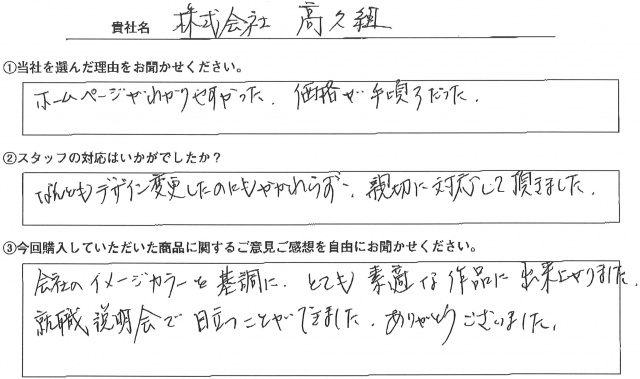 貴社名 株式会社 高久組
①当社を選んだ理由をお聞かせください。
ホームページがわかりやすかった。価格が手頃だった。
②スタッフの対応はいかがでしたか？
なんどもデザイン変更したのにもかかわらず、親切に対応して頂きました。
③今回購入していただいた商品に関するご意見ご感想を自由にお聞かせください。
会社のイメージカラーを基調に、とても素適な作品に出来上がりました。
就職説明会で目立つことができました。ありがとうございました。